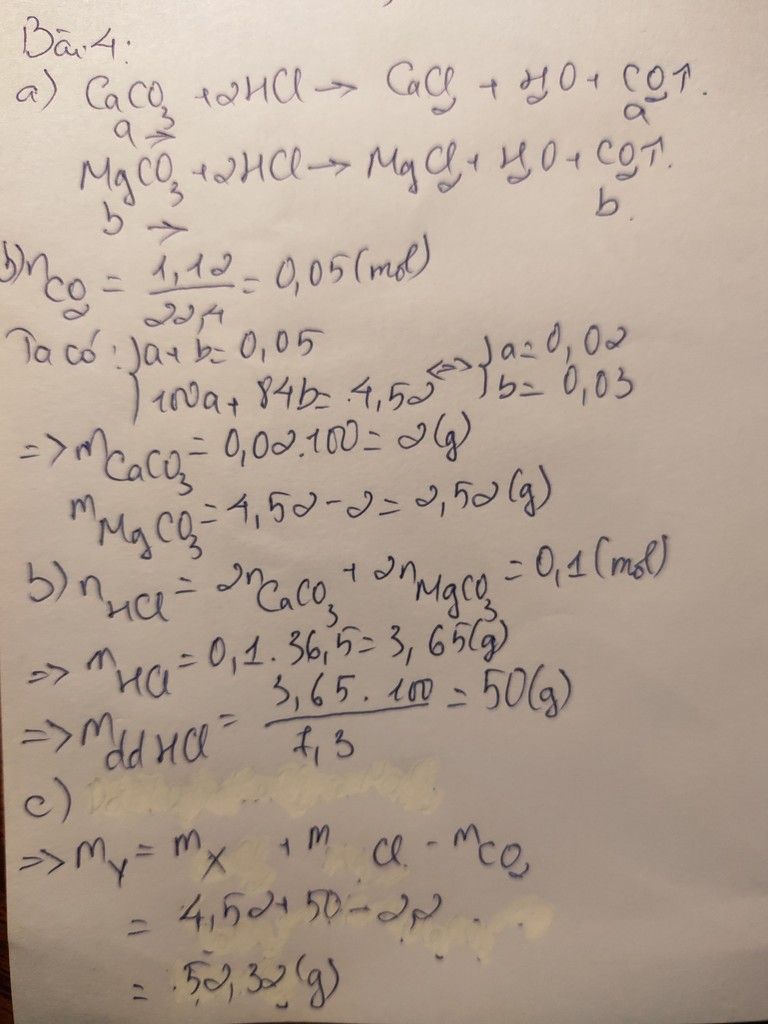 Bài 4:
a) CaCO₃ + 2HCl → CaCl₂ + H₂O + CO₂↑.
a → a
MgCO₃ + 2HCl → MgCl₂ + H₂O + CO₂↑.
b → b.
b) nCO₂ = 1,12/22,4 = 0,05 (mol)
Ta có: { a + b = 0,05 <=> { a = 0,02
{ 100a + 84b = 4,52 { b = 0,03
=> mCaCO₃ = 0,02.100 = 2 (g)
mMgCO₃ = 4,52 - 2 = 2,52 (g)
b) nHCl = 2nCaCO₃ + 2nMgCO₃ = 0,1 (mol)
=> mHCl = 0,1. 36,5 = 3,65 (g)
=> mddHCl = 3,65. 100/7,3 = 50 (g)
c)
=> mY = mX + m Cl - mCO₂
= 4,52 + 50 - 2,2
= 52,32 (g)